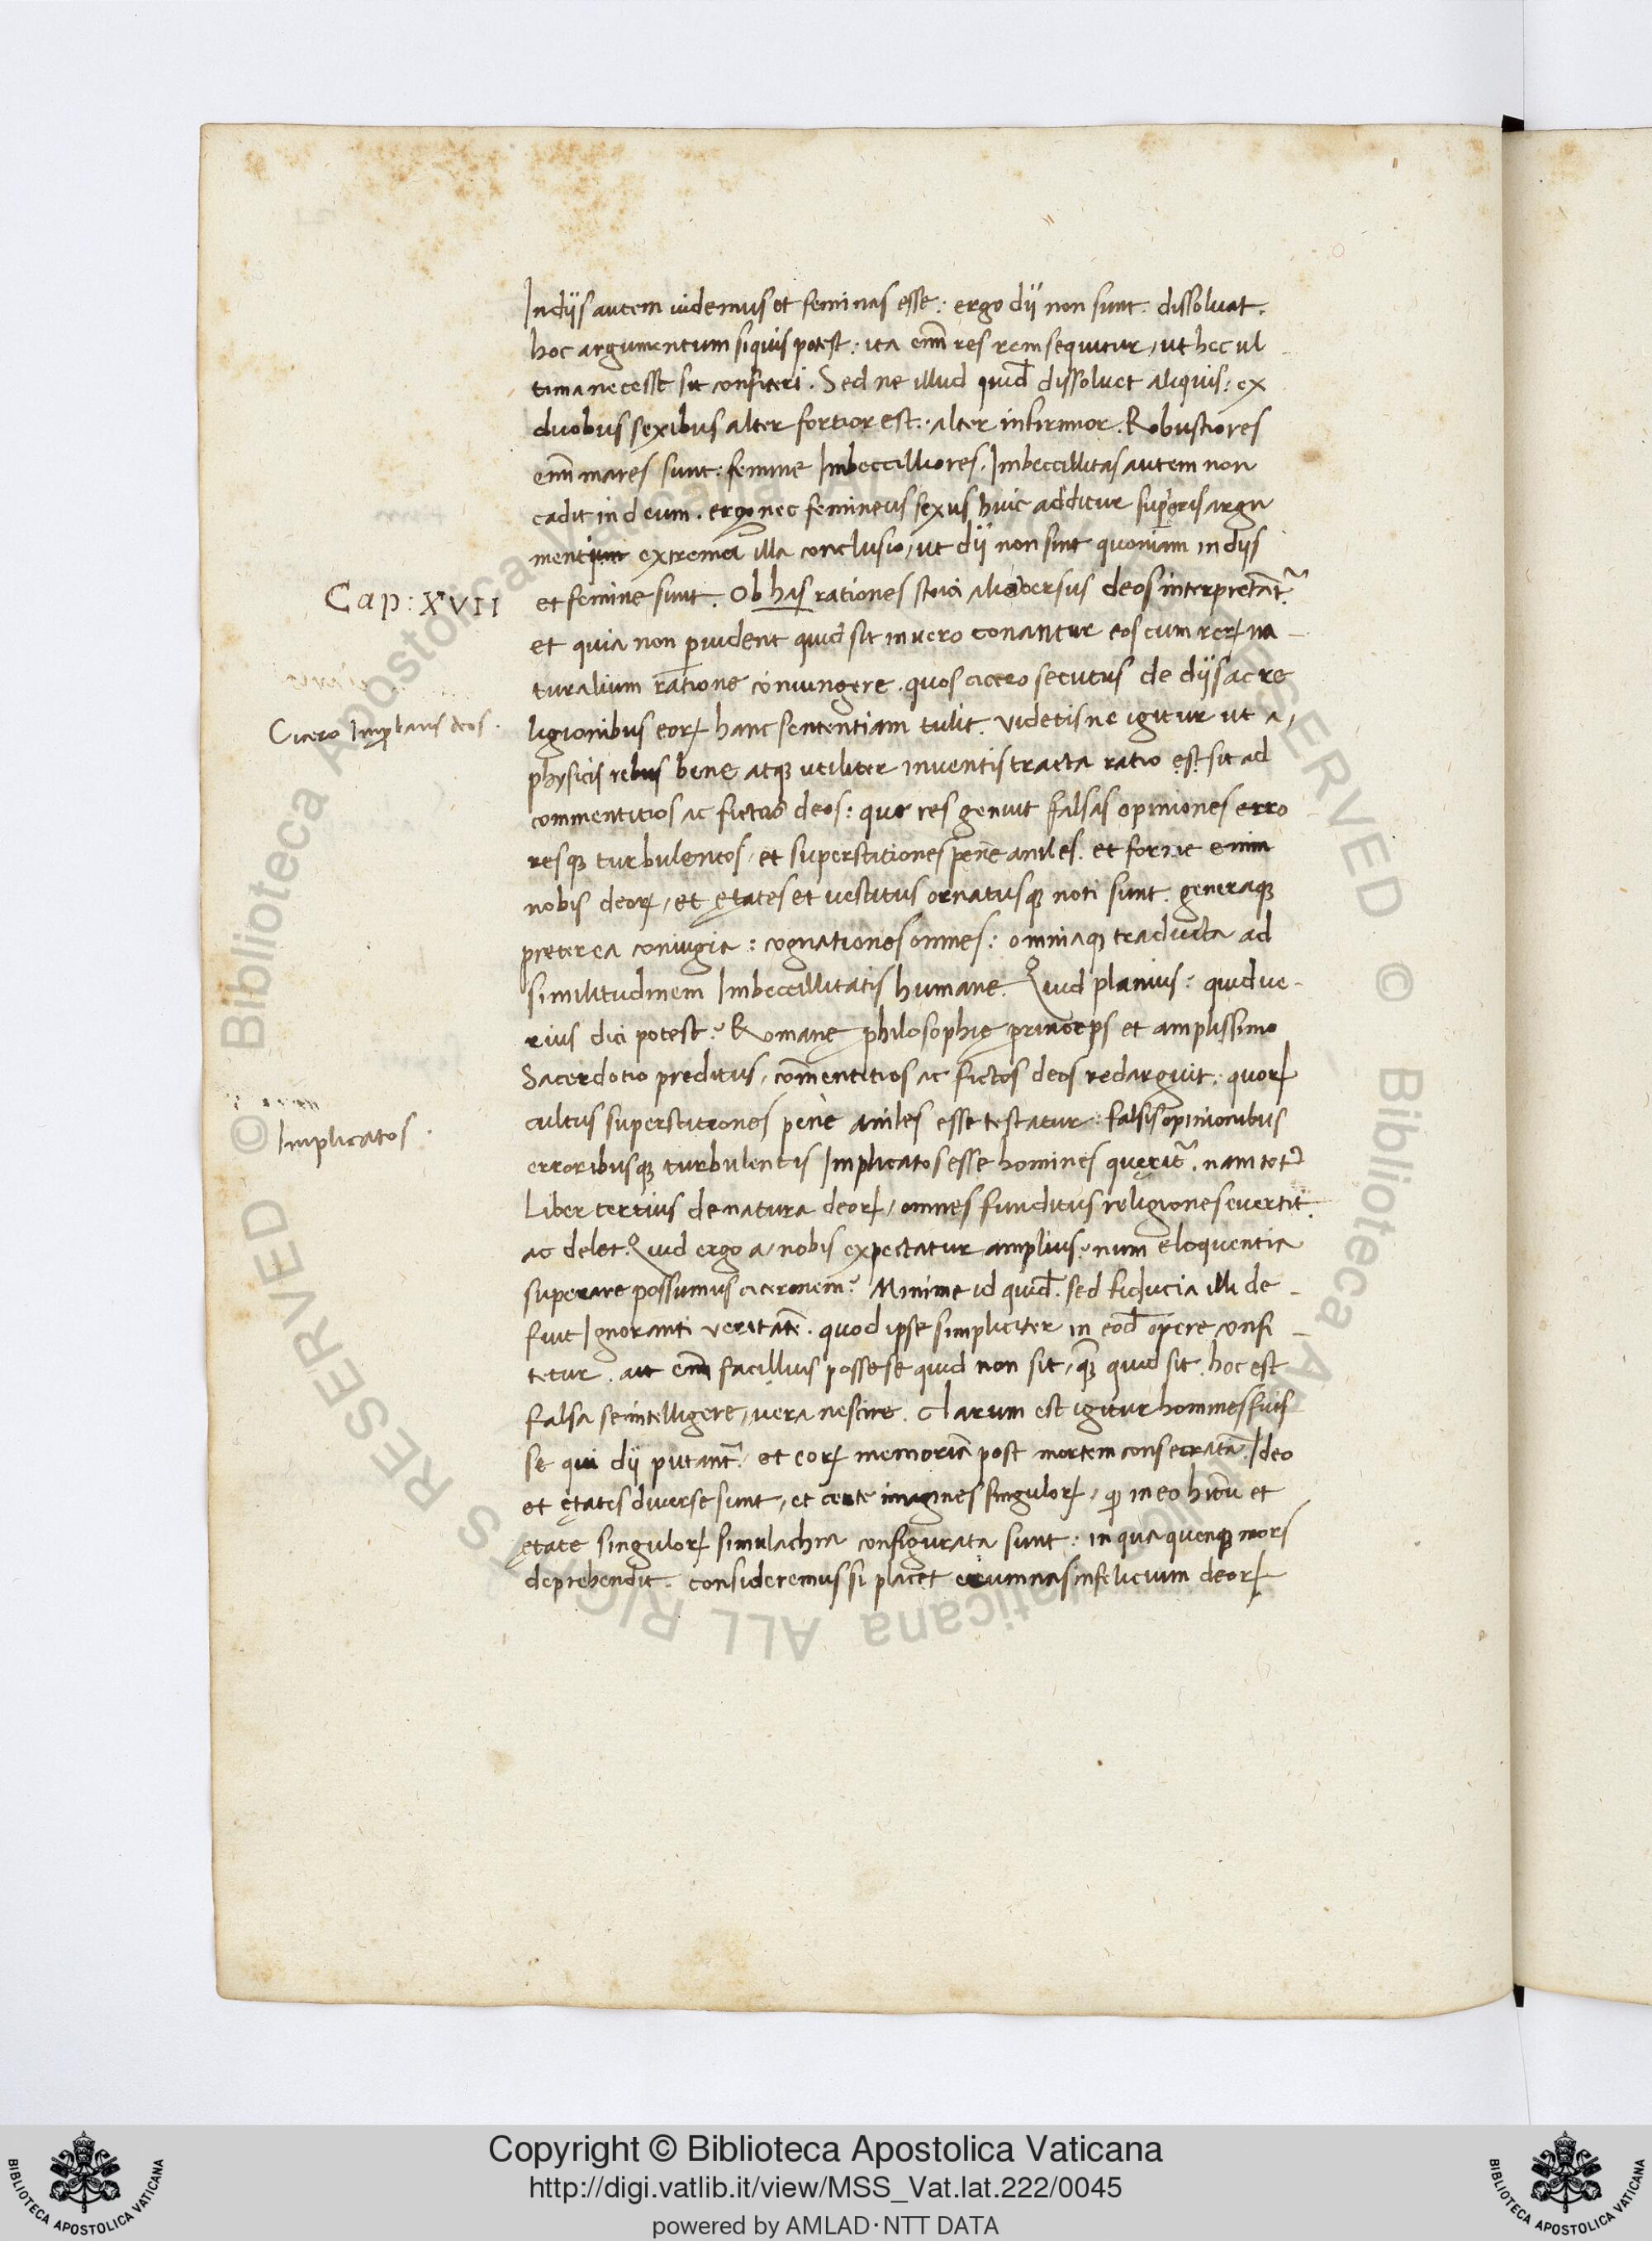 In diis autem videmus et feminas esse: ergo dii non sunt. dissolvat.
hoc argumentum siquis potest: ita enĩ res rem sequitur, ut hec ul
tima necesse sit confiteri. Sed ne illud quidẽ dissoluet aliquis: ex
duobus sexibus alter fortior est: alter infirmior. Robustiores
enĩ mares sunt: femine Imbecilliores. Imbecillitas autem non
cadit in deum. ergo nec femineus sexus huic additur superis argu
mentium extrema illa conclusio, ut dii non sint quoniam in diis
Cap: XVII
et femine sunt. Ob has rationes stoici alioversus deos interpretãt.
et quia non pvident quid sit in vero conantur eos cum rerꝝ na
turalium ratione coniungere. quos cicero secutus de diis ac re
ligionibus eorꝝ hanc sententiam tulit. videtisne igitur ut a,
physicis rebus bene atqꝫ utiliter inventis tracta ratio est. sit ad
commentitios ac fictos deos: que res genuit falsas opiniones erro
resqꝫ turbulentos, et superstitiones pene aniles. et forme enim
nobis deorꝝ, et ętates et vestitus ornatusqꝫ noti sunt. generaqꝫ
preterea coniugia: cognationes omnes: omniaqꝫ traducta ad
similitudinem Imbecillitatis humane. Quid planius: quid ve
rius dici potest? Romanę philosophię princeps et amplissimo
Sacerdotio preditus, com̃entitios ac fictos deos redarguit: quorꝝ
cultus superstitiones pene aniles esse testatur: falsis opinionibus
Implicatos.
erroribusqꝫ turbulentis Implicatos esse homines querit̃. nam tot9
Liber tertius de natura deorꝝ, omnes funditus religiones evertit.
ac delet. Quid ergo a, nobis expectatur amplius: num eloquentia
superare possumus ciceronem? Minime id quidẽ. sed fiducia illi de
fuit Ignoranti veritatẽ. quod ipse simpliciter in eodẽ opere confi
tetur. ait enĩ facilius posse se quid non sit, qꝫ̃ quid sit. hoc est
falsa se intelligere, vera nescire. Clarum est igitur homines fuis
se qui dii putant̃. et eorꝝ memoriã post mortem consecratã. Ideo
et ętates diverse sunt, et certe imagines singulorꝝ, qꝫ in eo hitũ et
ętate singulorꝝ simulachra configurata sunt: in qua quenqꝫ mors
deprehendit. consideremus si placet erumnas infelicium deorꝝ
Copyright © Biblioteca Apostolica Vaticana
http://digi.vatlib.it/view/MSS_Vat.lat.222/0045
powered by AMLAD·NTT DATA
BIBLIOTECA APOSTOLICA VATICANA
BIBLIOTECA APOSTOLICA VATICANA